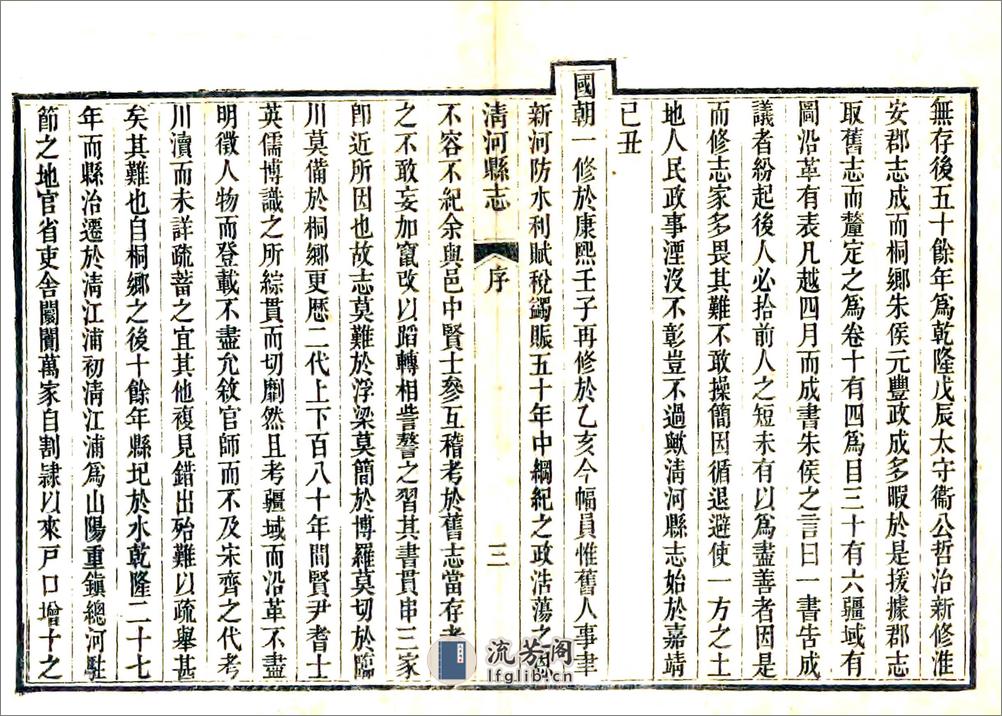 無存後五十餘年爲乾隆戊辰太守衞公哲治新修淮
安郡志成而桐鄉朱侯元豐政成多暇於是援據郡志
取舊志而釐定之爲卷十有四爲目三十有六疆域有
圖沿革有表凡越四月而成書朱侯之言曰一書告成
議者紛起後人必拾前人之短未有以爲盡善者因是
而修志家多畏其難不敢操簡因循退避使一方之土
地人民政事湮沒不彰豈不過歟淸河縣志始於嘉靖
己丑
國朝一修於康熙壬子再修於乙亥今幅員惟舊人事聿
新河防水利賦稅蠲賑五十年中綱紀之政浩蕩之恩
淸河縣志 序 三
不容不紀余與邑中賢士參互稽考於舊志當存者
之不敢妄加竄改以蹈轉相訾謷之習其書貫串三家
卽近所因也故志莫難於浮梁莫簡於博羅莫切於臨
川莫備於桐鄉更歷二代上下百八十年間賢尹耆士
英儒博識之所綜貫而切劘然且考疆域而沿革不盡
明徵人物而登載不盡允敘官師而不及宋齊之代考
川瀆而未詳疏蓄之宜其他複見錯出殆難以疏舉甚
矣其難也自桐鄉之後十餘年縣圮於水乾隆二十七
年而縣治遷於淸江浦初淸江浦爲山陽重鎭總河駐
節之地官省吏舍闤闠萬家自割隸以來戸口增十之
流芳阁
lfglib.cn